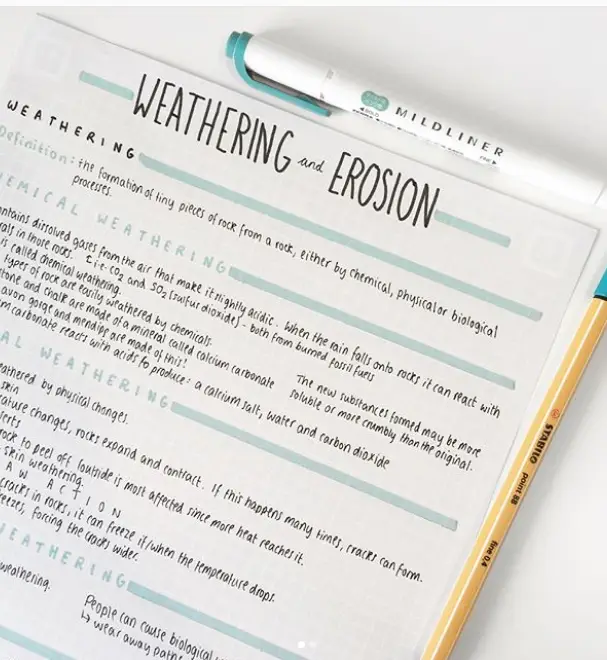 MILDLINER
WEATHERING and EROSION
WEATHERING
Definition: the formation of tiny pieces of rock from a rock, either by chemical, physical or biological
processes.
HEMICAL WEATHERING
ontains dissolved gases from the air that make it slightly acidic. When the rain falls onto rocks it can react with
rals in those rocks. i.e. CO2 and SO2 (sulfur dioxide) - both from burned fossil fuels
is called chemical weathering.
The new substances formed may be more
soluble or more crumbly than the original.
types of rock are easily weathered by chemicals.
stone and chalk are made of a mineral called calcium carbonate
avon gorge and mendips are made of this!
um carbonate reacts with acids to produce: a calcium salt, water and carbon dioxide
AL WEATHERING
eathered by physical changes.
skin
rature changes, rocks expand and contract. If this happens many times, cracks can form.
erts
rock to peel off. (outside is most affected since more heat reaches it.
skin weathering.
AW ACTION
cracks in rocks, it can freeze if/when the temperature drops.
reezes, forcing the cracks wider.
WEATHERING
weathering.
People can cause biological
↳ wear away paths
STABILO point 88 fine 0.4